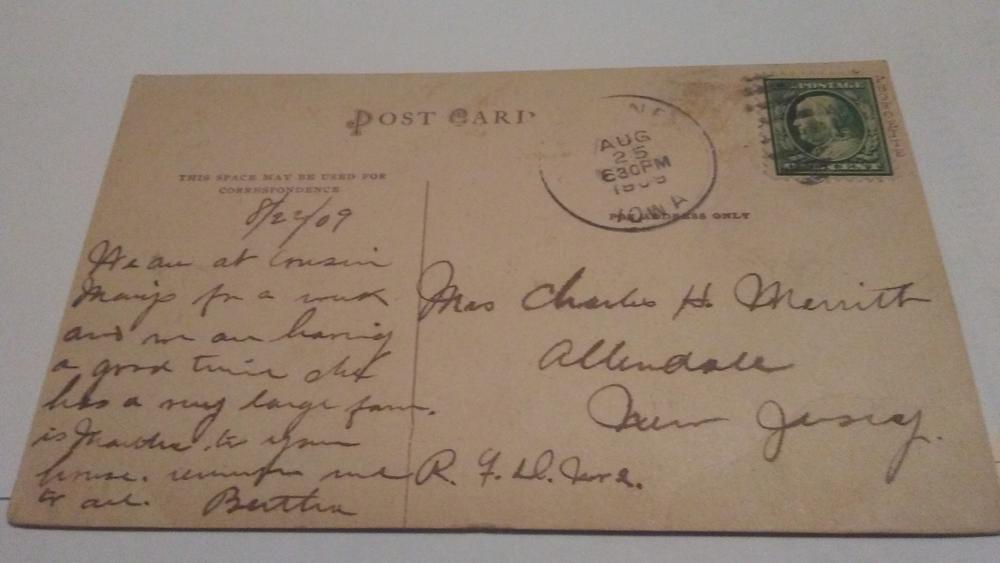 POST CARD
THIS SPACE MAY BE USED FOR
CORRESPONDENCE
FOR ADDRESS ONLY
AUG
25
630PM
1909
IOWA
POSTAGE
8/22/09
We are at Cousin
Marys for a week
and we are having
a good time she
has a very large farm.
is Martha to your
house. remember me
to all. Bertha
Mrs Charles H. Merritt
Allendale
New Jersey.
R. F. D.